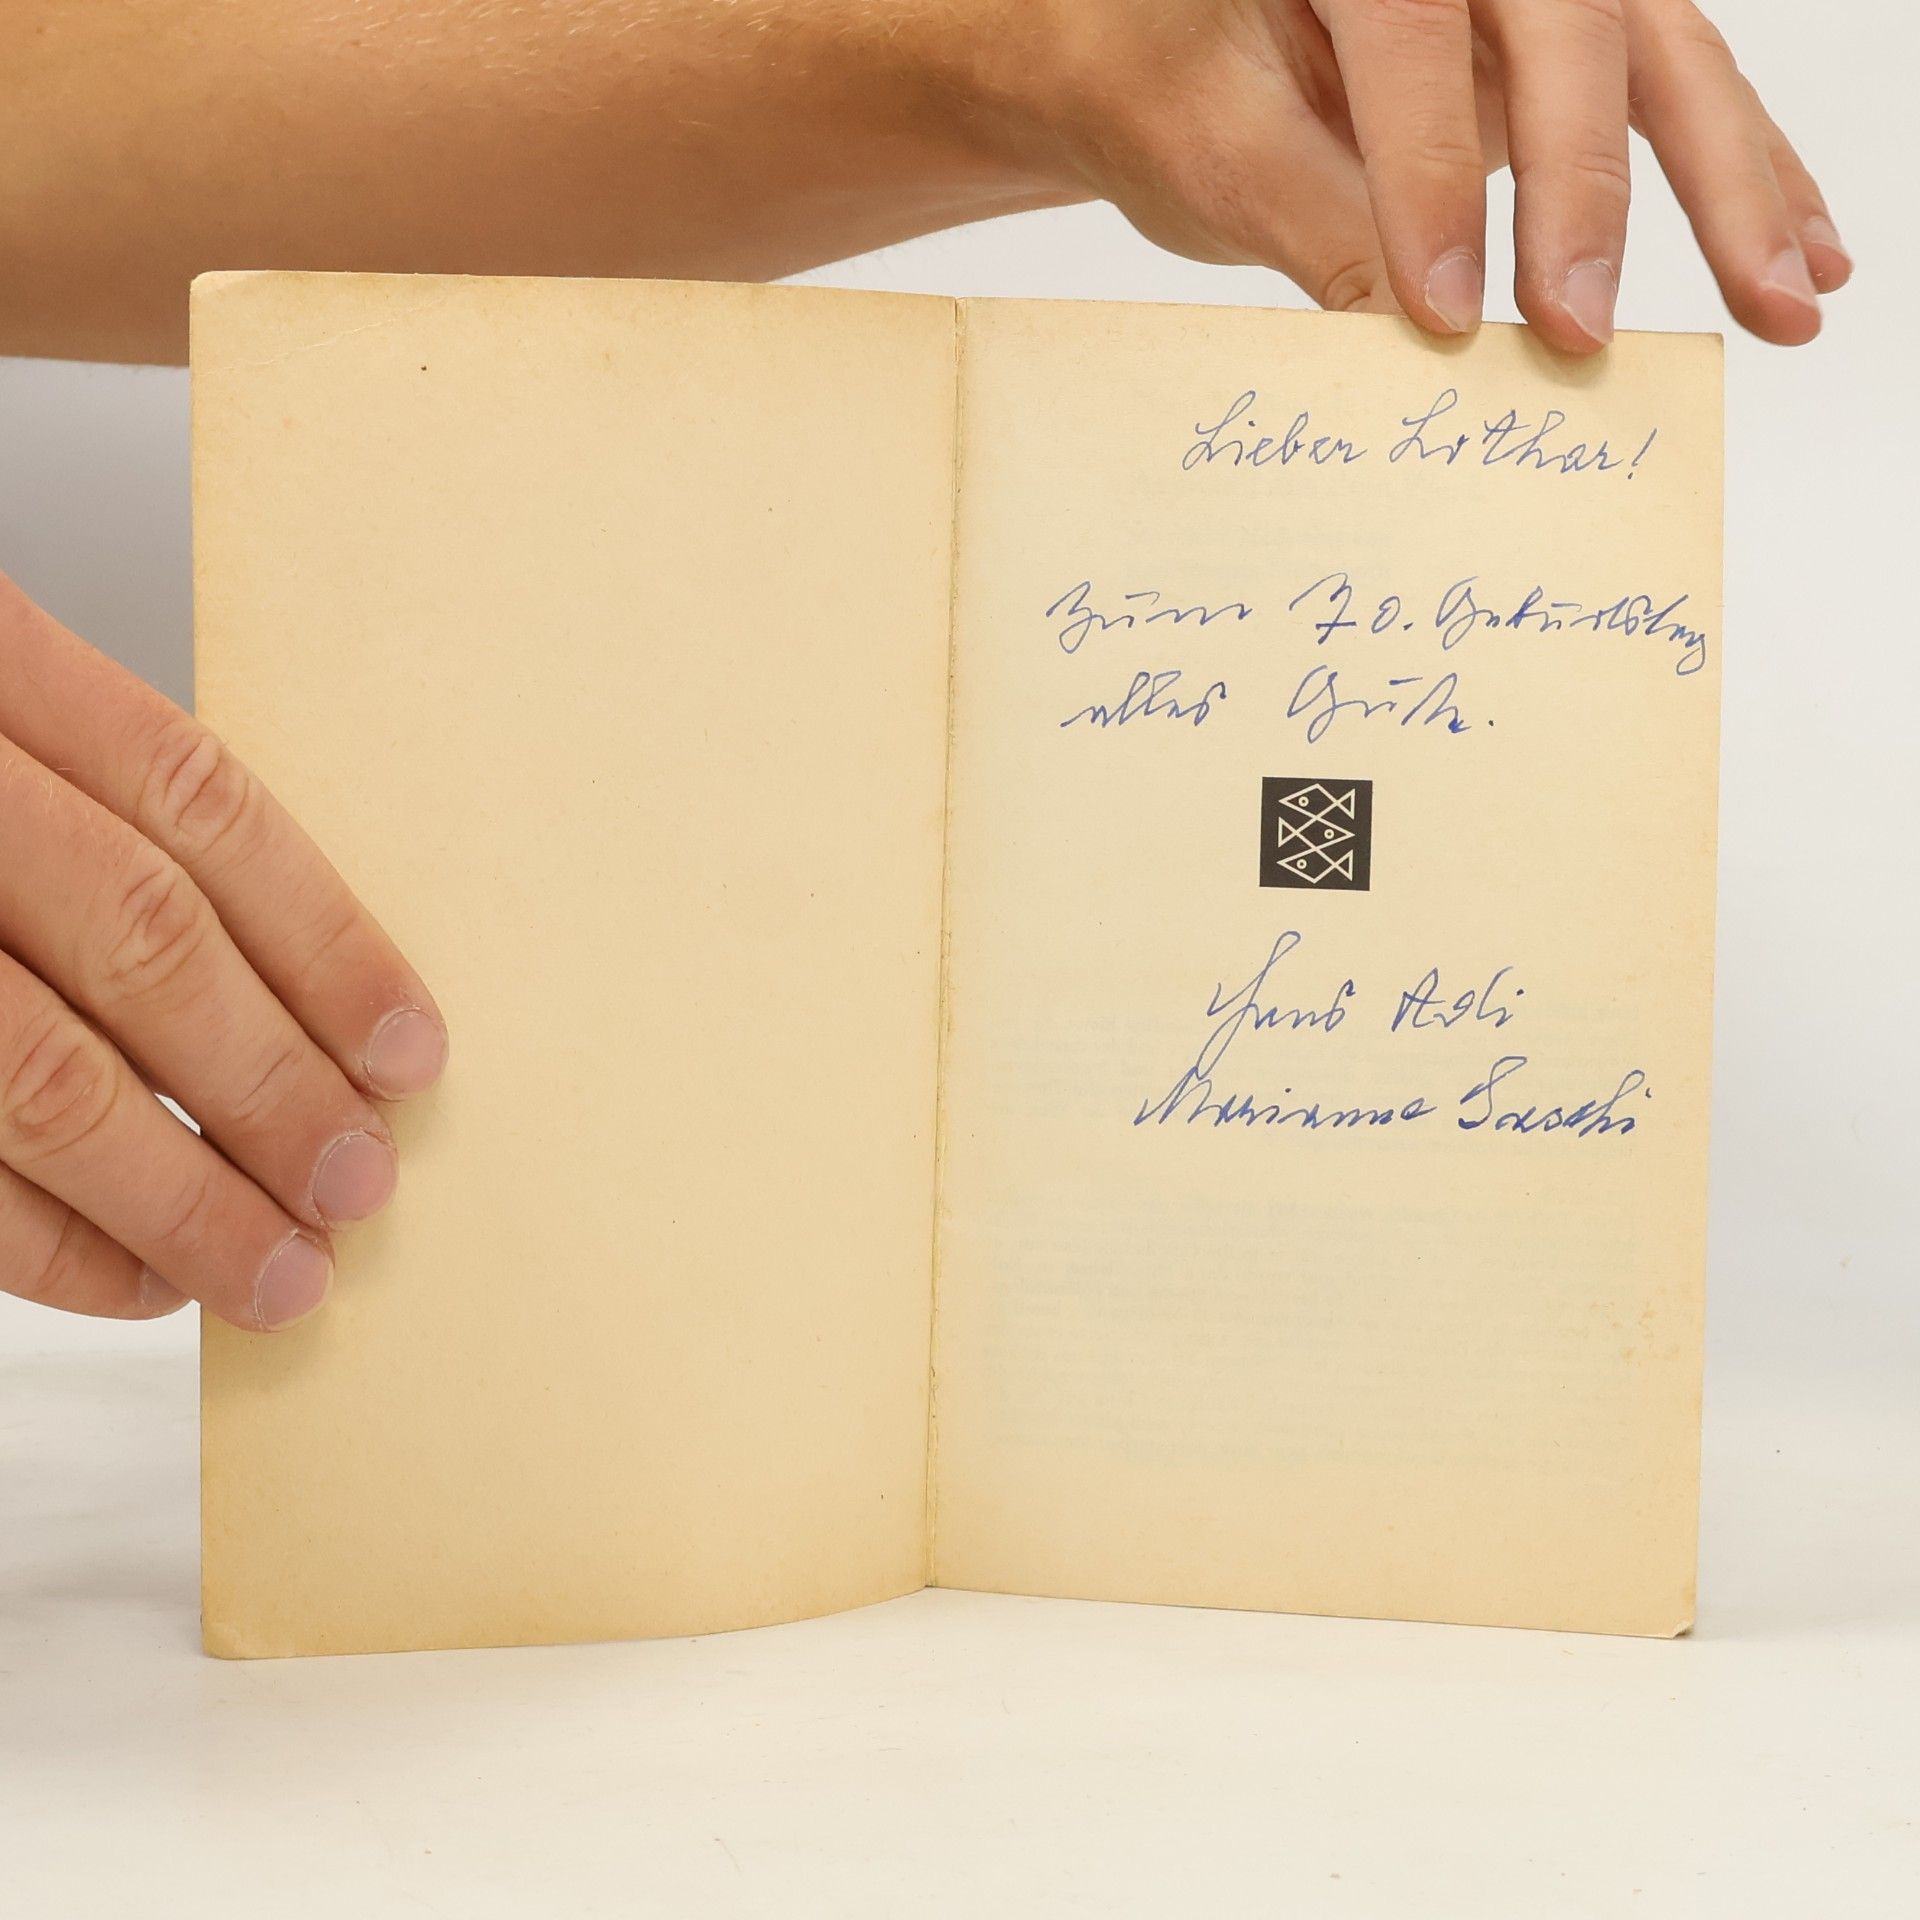 Lieber Lothar!
Zum 70. Geburtstag
alles Gute.
Hans Adi
Marianne Saschi